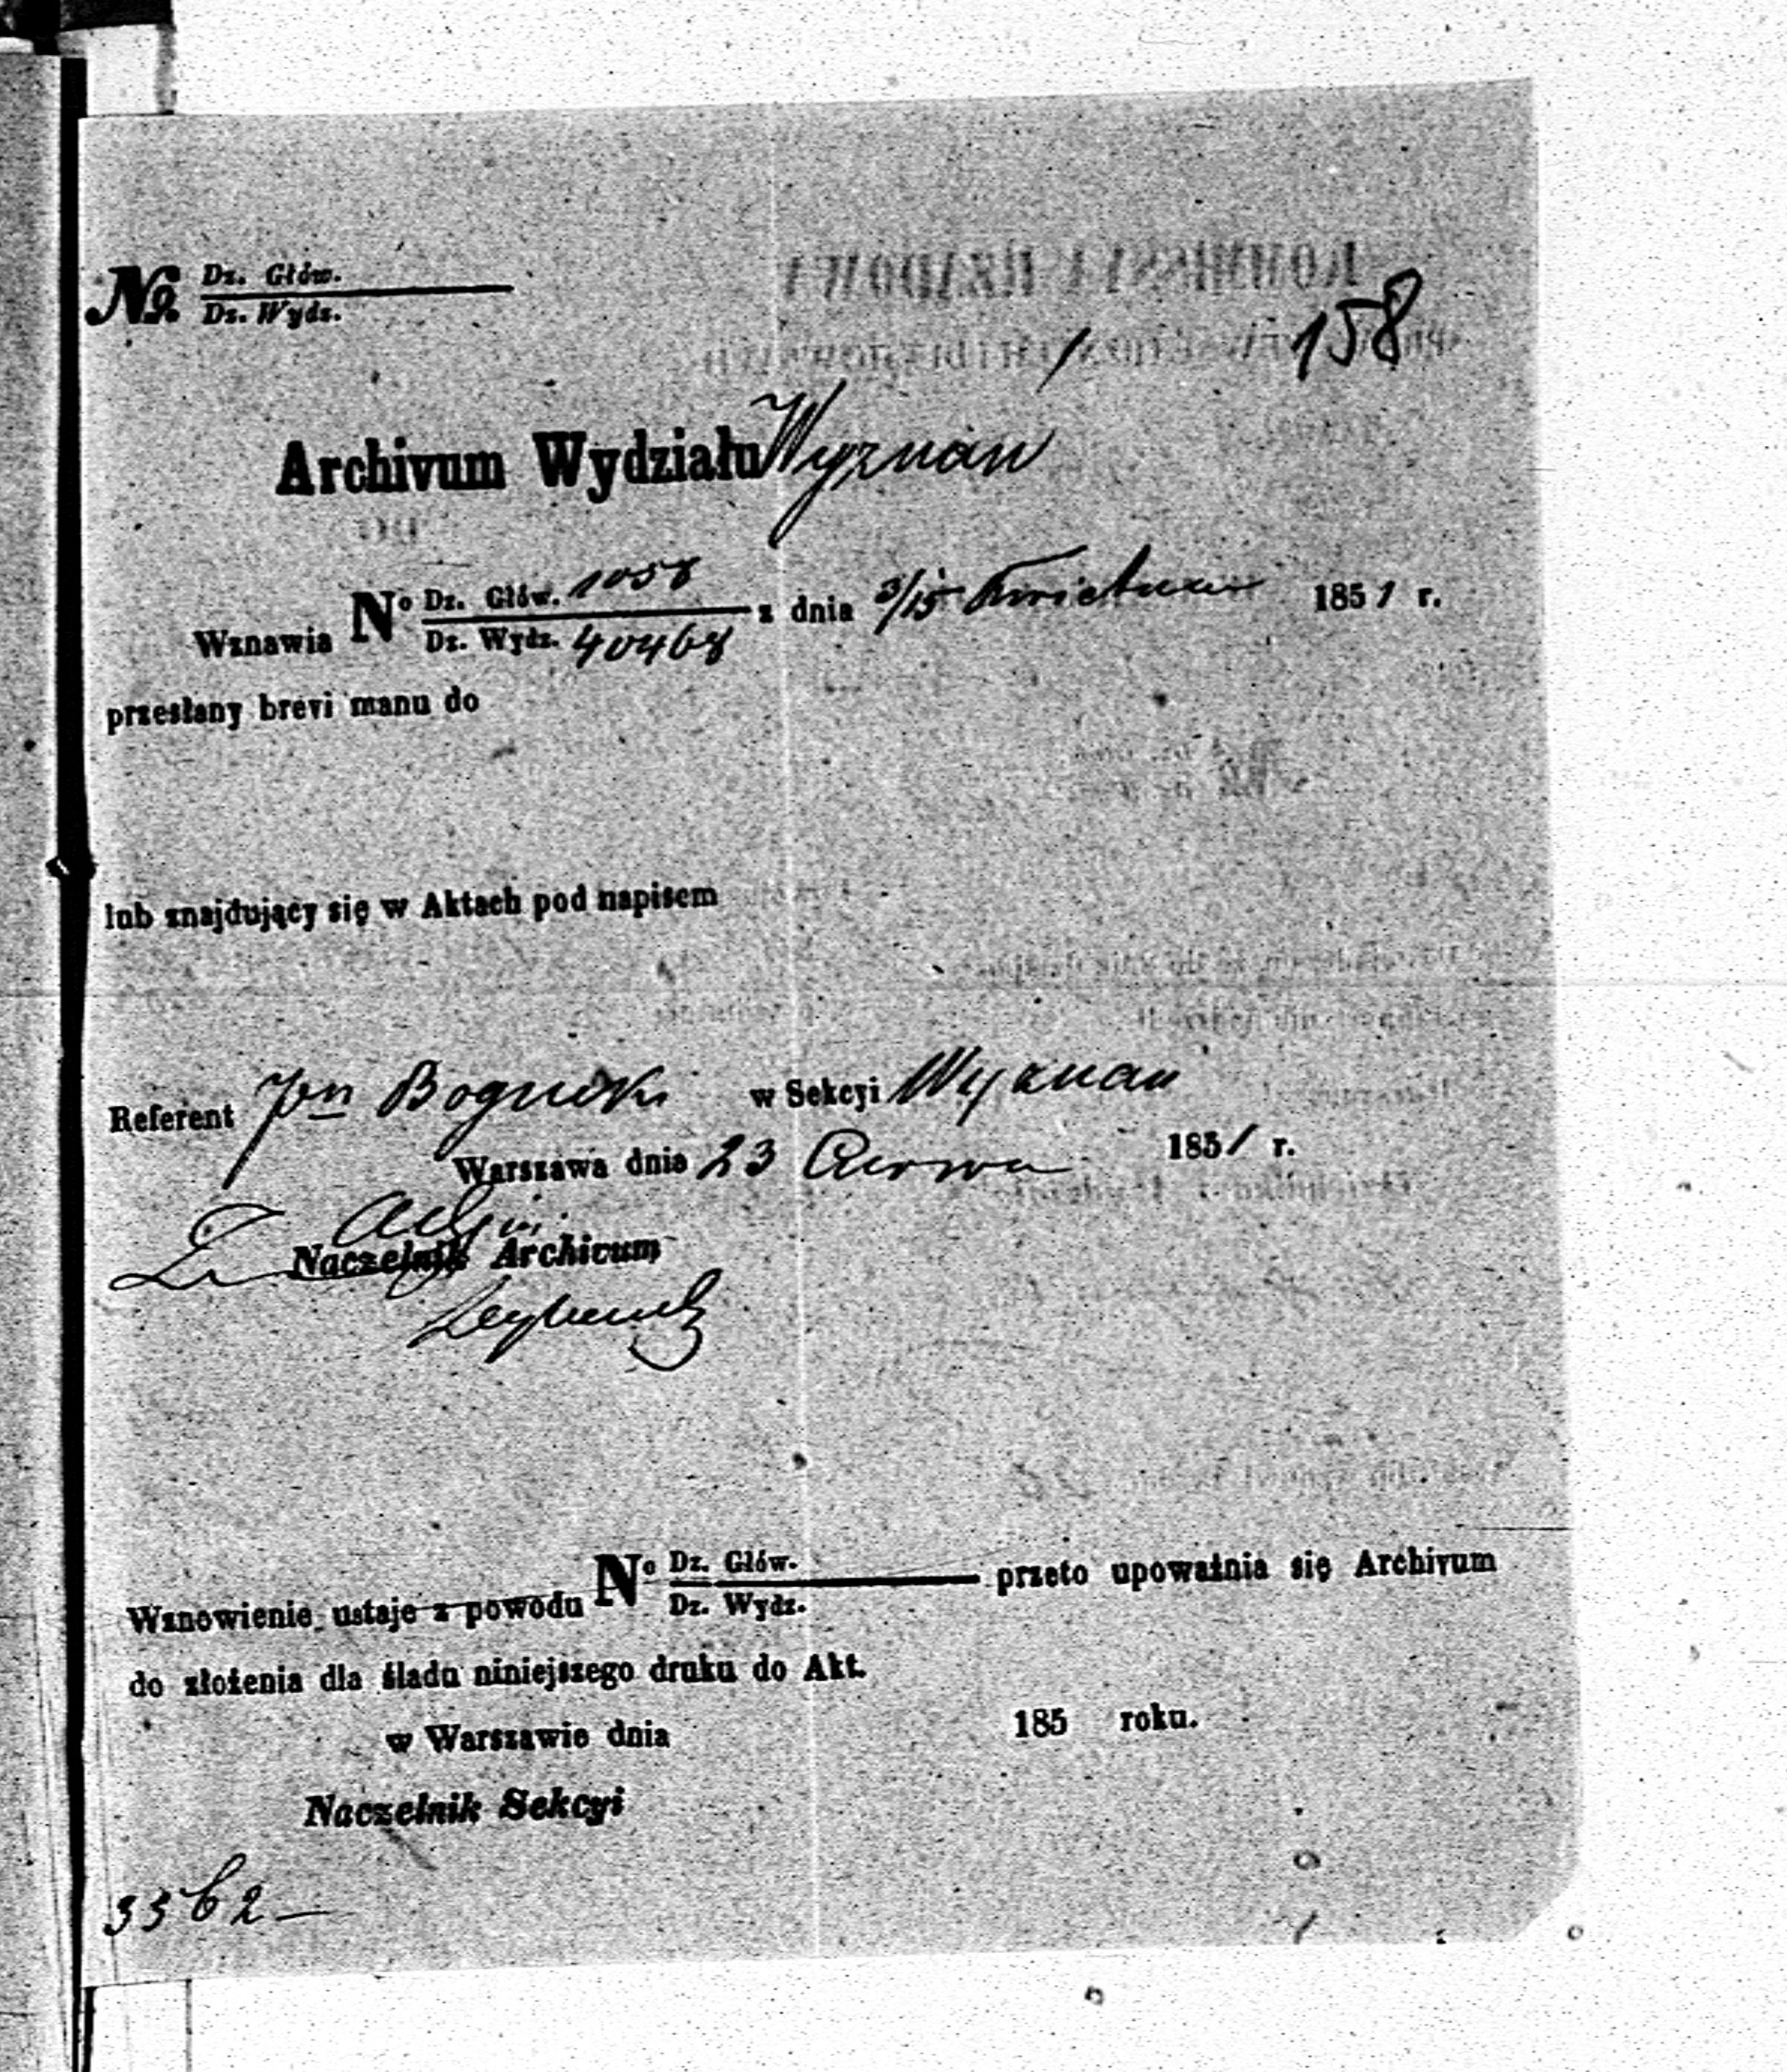 158
№ Dz. Głów.
Dz. Wydz.
Archivum Wydziału Wyznań
Wznawia N° Dz. Głów. 1058 z dnia 3/15 Kwietnia 1851 r.
Dz. Wydz. 40468
przesłany brevi manu do
lub znajdujący się w Aktach pod napisem
Referent Jan Bognicki w Sekcyi Wyznań
Warszawa dnia 23 Czerwca 1851 r.
Naczelnik Archivum
Wznowienie ustaje z powodu N° Dz. Głów. przeto upoważnia się Archivum
Dz. Wydz.
do złożenia dla śladu niniejszego druku do Akt.
w Warszawie dnia 185 roku.
Naczelnik Sekcyi
3562